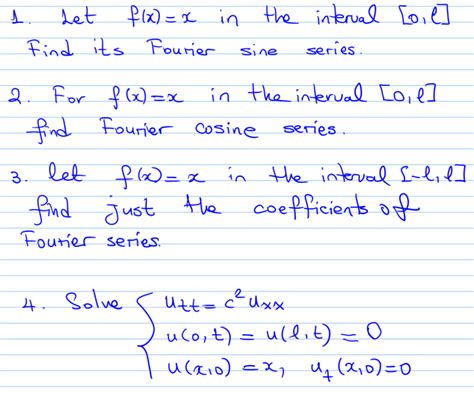 1. Let f(x)=x in the interval [0,l]
Find its Fourier sine series.
2. For f(x)=x in the interval [0,l]
find Fourier cosine series.
3. let f(x)=x in the interval [-l,l]
find just the coefficients of
Fourier series.
4. Solve { utt = c²uxx
u(0,t) = u(l,t) = 0
u(x,0) = x, ut(x,0)=0